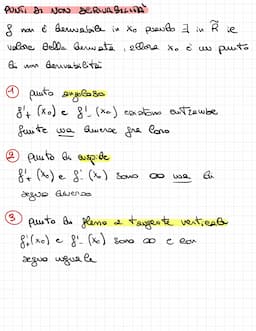 PUNTI DI NON DERIVABILITÀ
f non è derivabile in x₀ quando ∄ in R̃ il
valore della derivata, allora x₀ è un punto
di non derivabilità
① punto angoloso
f'₊(x₀) e f'₋(x₀) esistono entrambe
finite ma diverse fra loro
② punto di cuspide
f'₊(x₀) e f'₋(x₀) sono ∞ ma di
segno diverso
③ punto di flesso a tangente verticale
f'₊(x₀) e f'₋(x₀) sono ∞ e con
segno uguale